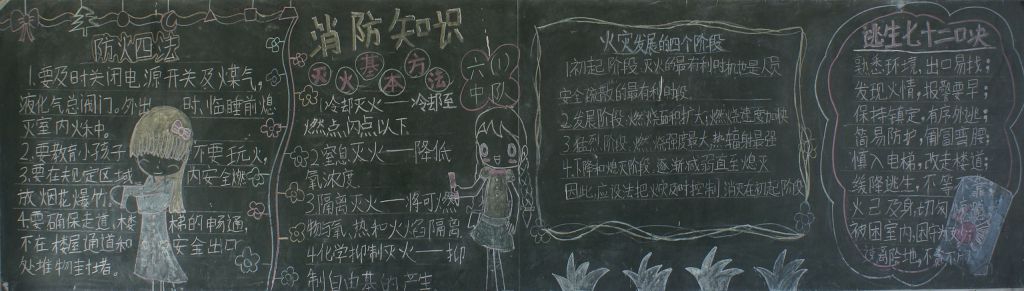 防火四法
1.要及时关闭电源开关及煤气,
液化气总阀门。外出 时,临睡前熄
灭室内火种。
2.要教育小孩子 不要玩火,
3.要在规定区域 内安全燃
放烟花爆竹。
4.要确保走道,楼 梯的畅通,
不在楼屋通道和 安全出口
处堆物封堵。
消防知识
灭火基本方法
六(1)
中队
1.冷却灭火——冷却至
燃点、闪点以下
2.窒息灭火——降低
氧浓度
3.隔离灭火——将可燃
物与氧、热和火焰隔离
4.化学抑制灭火——抑
制自由基的产生
火灾发展的四个阶段
1.初起阶段:灭火的最有利时机也是人员
安全疏散的最有利时段
2.发展阶段:燃烧面积扩大;燃烧速度加快
3.猛烈阶段:燃烧强度最大,热辐射最强
4.下降和熄灭阶段:逐渐减弱直至熄灭
因此,应设法把火灾及时控制、消灭在初起阶段
逃生七十二口诀
熟悉环境,出口易找;
发现火情,报警要早;
保持镇定,有序外逃;
简易防护,匍匐弯腰;
慎入电梯,改走楼道;
缓降逃生,不等
火已及身,切勿
被困室内,固守
远离险地,不